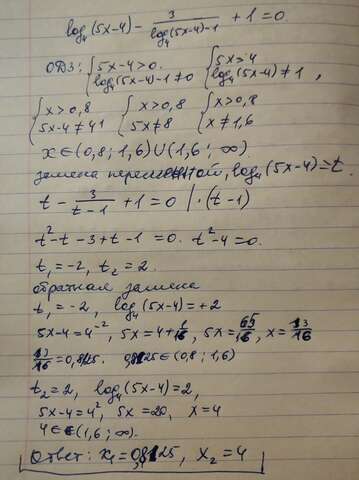 log₄(5x-4) - 3/(log₄(5x-4)-1) + 1 = 0
ОДЗ: {5x-4>0. {5x>4
{log₄(5x-4)-1≠0 {log₄(5x-4)≠1,
{x>0,8 {x>0,8 {x>0,8
{5x-4≠4¹ {5x≠8 {x≠1,6
x∈(0,8; 1,6)∪(1,6; ∞).
замена переменной, log₄(5x-4)=t.
t - 3/(t-1) + 1 = 0 | ·(t-1)
t²-t-3+t-1=0. t²-4=0.
t₁=-2, t₂=2.
обратная замена
t₁=-2, log₄(5x-4)=+2
5x-4=4⁻², 5x=4+1/16, 5x=65/16, x=13/16
13/16=0,8125. 0,8125∈(0,8; 1,6)
t₂=2, log₄(5x-4)=2,
5x-4=4², 5x=20, x=4
4∈(1,6; ∞).
Ответ: x₁=0,8125, x₂=4